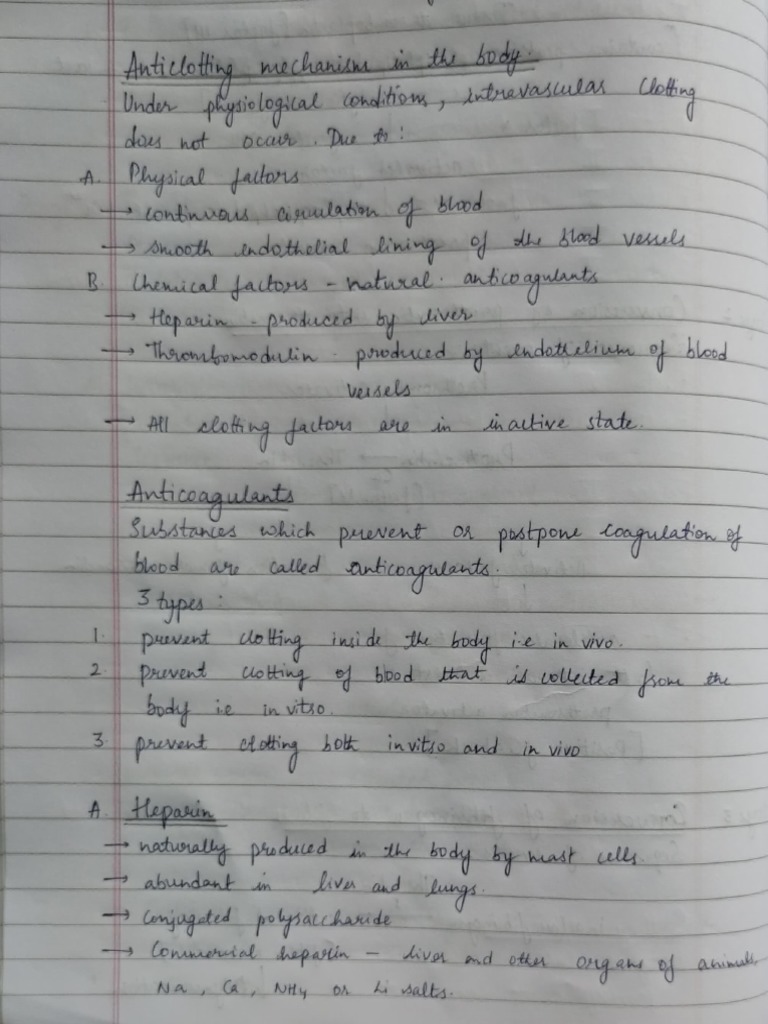 Anticlotting mechanism in the body.
Under physiological conditions, intravascular clotting
does not occur. Due to:
A. Physical factors
→ continuous circulation of blood
→ smooth endothelial lining of the blood vessels
B. Chemical factors - natural anticoagulants
→ Heparin - produced by liver
→ Thrombomodulin - produced by endothelium of blood
vessels
→ All clotting factors are in inactive state.
Anticoagulants
Substances which prevent or postpone coagulation of
blood are called anticoagulants.
3 types:
1. prevent clotting inside the body i.e in vivo.
2. prevent clotting of blood that is collected from the
body i.e in vitro.
3. prevent clotting both invitro and in vivo
A. Heparin
→ naturally produced in the body by mast cells
→ abundant in liver and lungs.
→ conjugated polysaccharide
→ Commercial heparin - liver and other organs of animals
Na, Ca, NH4 or Li salts.